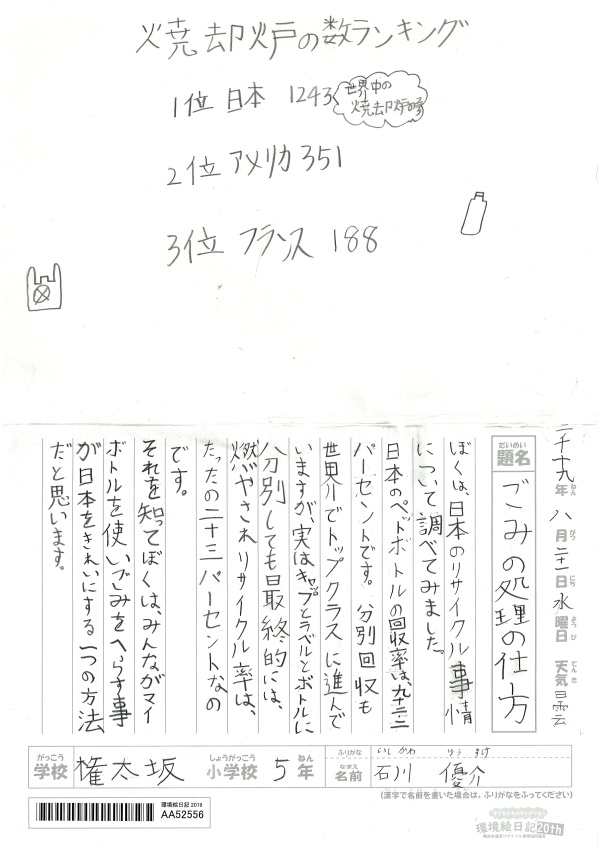 焼却炉の数ランキング
1位 日本 1243
世界中の
焼却炉の
2位 アメリカ 351
3位 フランス 188
二千十九年八月二十一日水曜日 天気曇
ねん がつ にち ようび てんき
だいめい
題名 ごみの処理の仕方
ぼくは、日本のリサイクル事情
について調べてみました。
日本のペットボトルの回収率は、九十三・二
パーセントです。分別回収も
世界でトップクラスに進んで
いますが、実はキャップとラベルとボトルに
分別しても最終的には、
燃やされリサイクル率は、
たったの二十三パーセントなの
です。
それを知ってぼくは、みんながマイ
ボトルを使いごみをへらす事
が日本をきれいにする一つの方法
だと思います。
がっこう しょうがっこう ねん
学校 権太坂 小学校 5年
ふりがな いしかわ ゆうすけ
なまえ
名前 石川 優介
(漢字で名前を書いた場合は、ふりがなをふってください)
環境絵日記2019
AA52556
環境絵日記20th